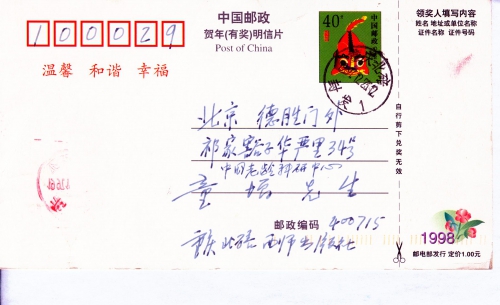 100029
中国邮政
贺年(有奖)明信片
Post of China
温馨 和谐 幸福
40分
中国邮政
领奖人填写内容
姓名 地址或单位名称
证件名称 证件号码
北京 德胜门外
祁家豁子华严里34号
中国老龄科研中心
童 先生
自行剪下兑奖无效
邮政编码 400715
重庆 北碚 西师出版社
1998
邮电部发行 定价1.00元